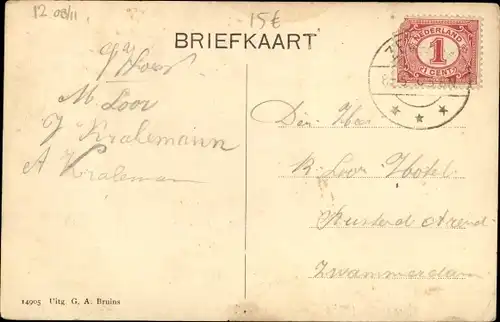 12 08/11
15€
BRIEFKAART
NEDERLAND
1
1 CENT
M. Loor
J Kralemann
A Kraleman
Den Heer
R. Loor Hotel
Rustend Arend
Zwammerdam
14905 Uitg. G. A. Bruins